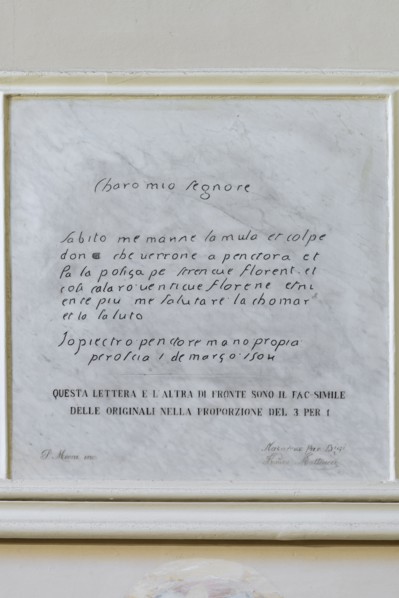 Charo mio segnore
Sabito me manne la mula et colpe
done che verrone a penctora et
fa la poliça pe florene et
cosi calaro venticue florene etni
ente piu me salutare la chomar
et la saluto
Io piectro penctore mano propia
peroscia 1 de março 1504
QUESTA LETTERA E L ALTRA DI FRONTE SONO IL FAC-SIMILE
DELLE ORIGINALI NELLA PROPORZIONE DEL 3 PER 1